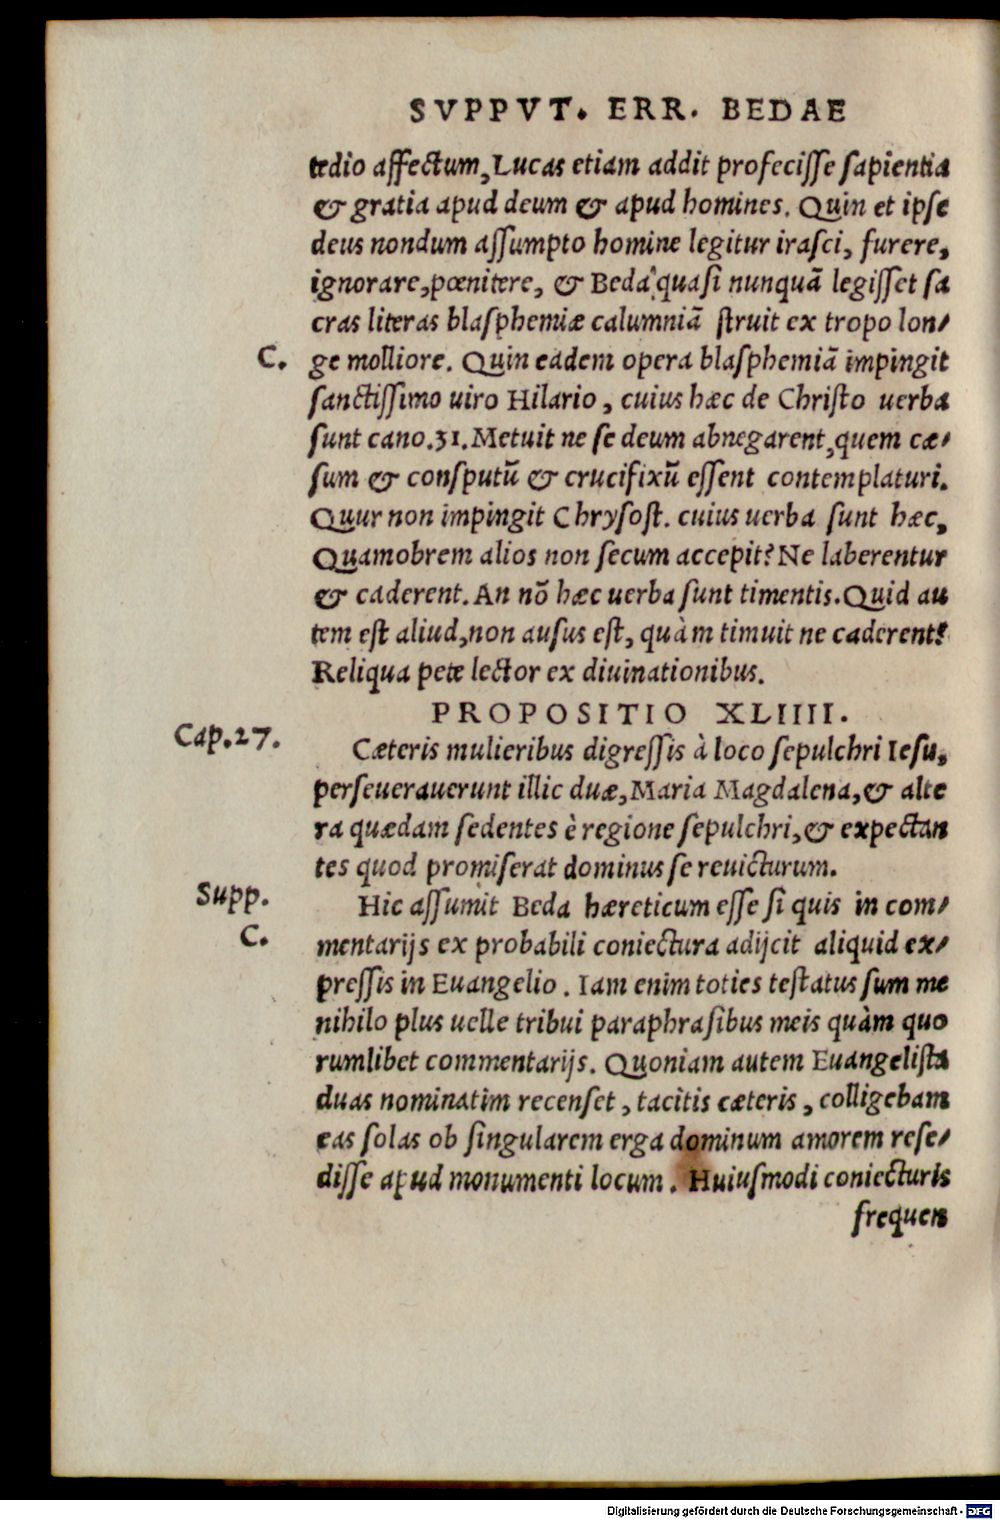 SVPPVT. ERR. BEDAE
tędio affectum, Lucas etiam addit profecisse sapientia
& gratia apud deum & apud homines. Quin et ipse
deus nondum assumpto homine legitur irasci, furere,
ignorare, pœnitere, & Beda quasi nunquã legisset sa
cras literas blasphemiæ calumniã struit ex tropo lon/
C. ge molliore. Quin eadem opera blasphemiã impingit
sanctissimo uiro Hilario, cuius hæc de Christo uerba
sunt cano.31. Metuit ne se deum abnegarent, quem cæ/
sum & consputũ & crucifixũ essent contemplaturi.
Quur non impingit Chrysost. cuius uerba sunt hæc,
Quamobrem alios non secum accepit? Ne laberentur
& caderent. An nõ hæc uerba sunt timentis. Quid au
tem est aliud, non ausus est, quàm timuit ne caderent?
Reliqua pete lector ex diuinationibus.
PROPOSITIO XLIIII.
Cap.27. Cæteris mulieribus digressis à loco sepulchri Iesu,
perseuerauerunt illic duæ, Maria Magdalena, & alte
ra quædam sedentes è regione sepulchri, & expectan
tes quod promiserat dominus se reuicturum.
Supp. Hic assumit Beda hæreticum esse si quis in com/
C. mentarijs ex probabili coniectura adijcit aliquid ex/
pressis in Euangelio. Iam enim toties testatus sum me
nihilo plus uelle tribui paraphrasibus meis quàm quo
rumlibet commentarijs. Quoniam autem Euangelista
duas nominatim recenset, tacitis cæteris, colligebam
eas solas ob singularem erga dominum amorem rese/
disse apud monumenti locum. Huiusmodi coniecturis
frequen
Digitalisierung gefördert durch die Deutsche Forschungsgemeinschaft - DFG